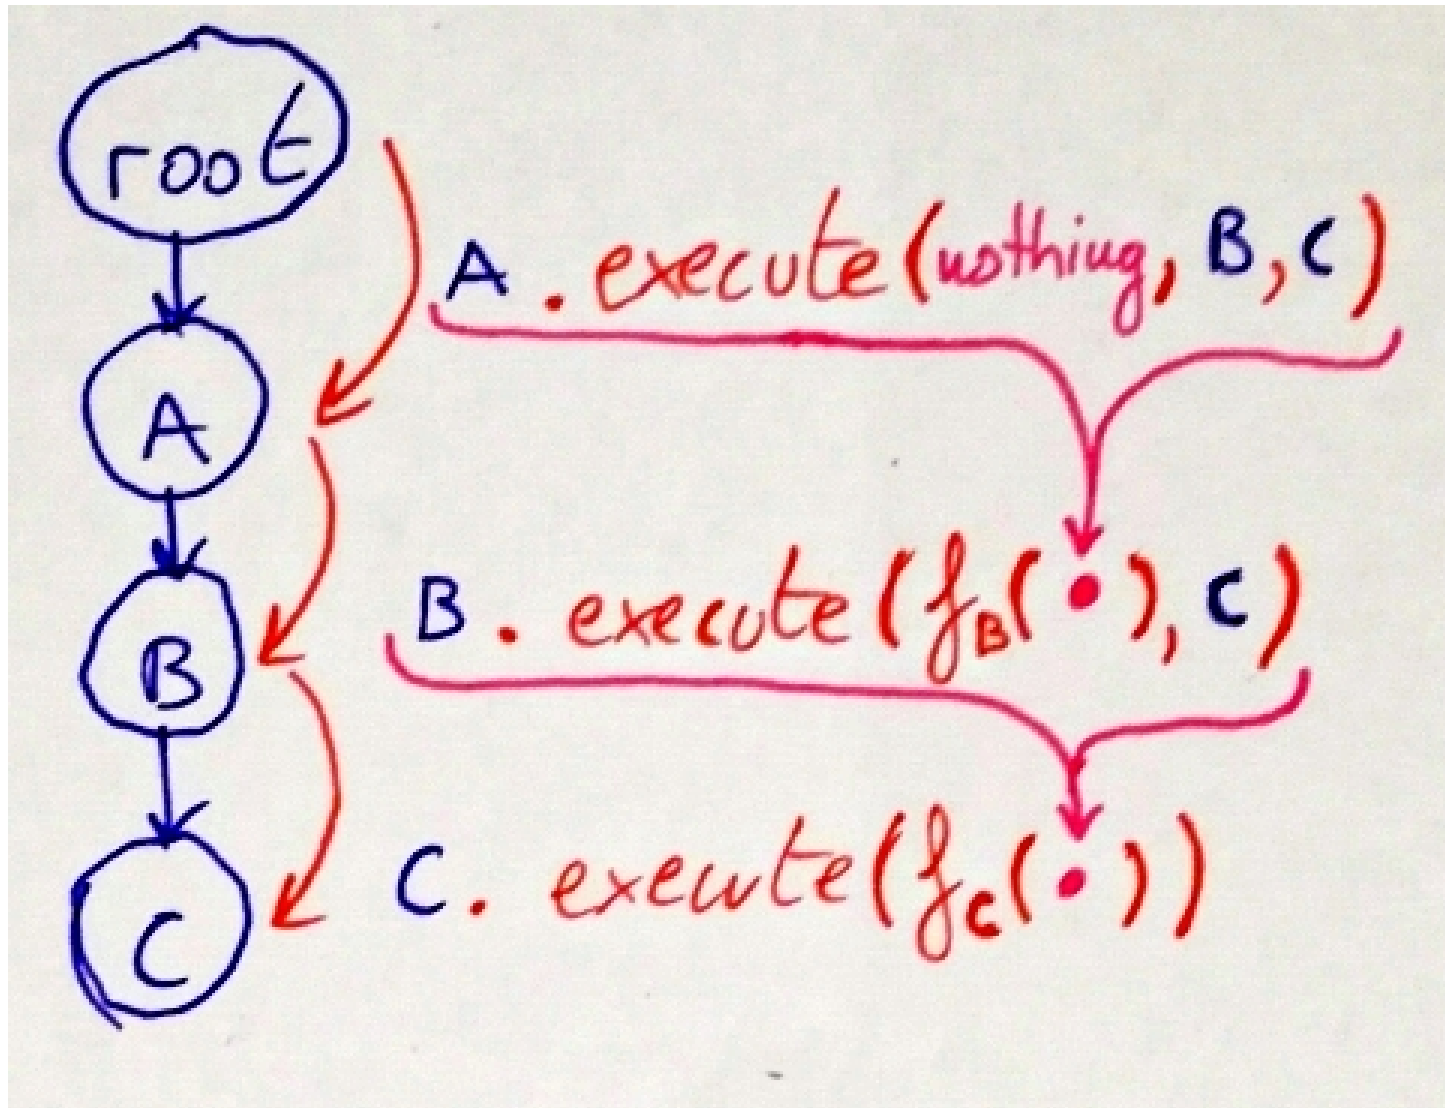 root
A . execute(nothing, B, C)
A
B . execute(fB(•), C)
B
C. execute(fC(•))
C